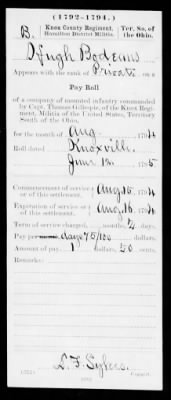 (1792-1794.)
B. Knox County Regiment, Ter. So. of
Hamilton District Militia. the Ohio.
Hugh Bodkins
Appears with the rank of Private on a
Pay Roll
of a company of mounted infantry commanded
by Capt. Thomas Gillespie, of the Knox Regi-
ment, Militia of the United States, Territory
South of the Ohio,
for the month of Aug, 1794
Roll dated Knoxville
June 12, 1795
Commencement of service
or of this settlement. Aug 15, 1794
Expiration of service
or of this settlement. Aug 16, 1794
Term of service charged, months, 2 days.
Pay per month days 75/100 dollars.
Amount of pay, 1 dollars, 50 cents.
Remarks:
L. T. Sykes
Copyist.